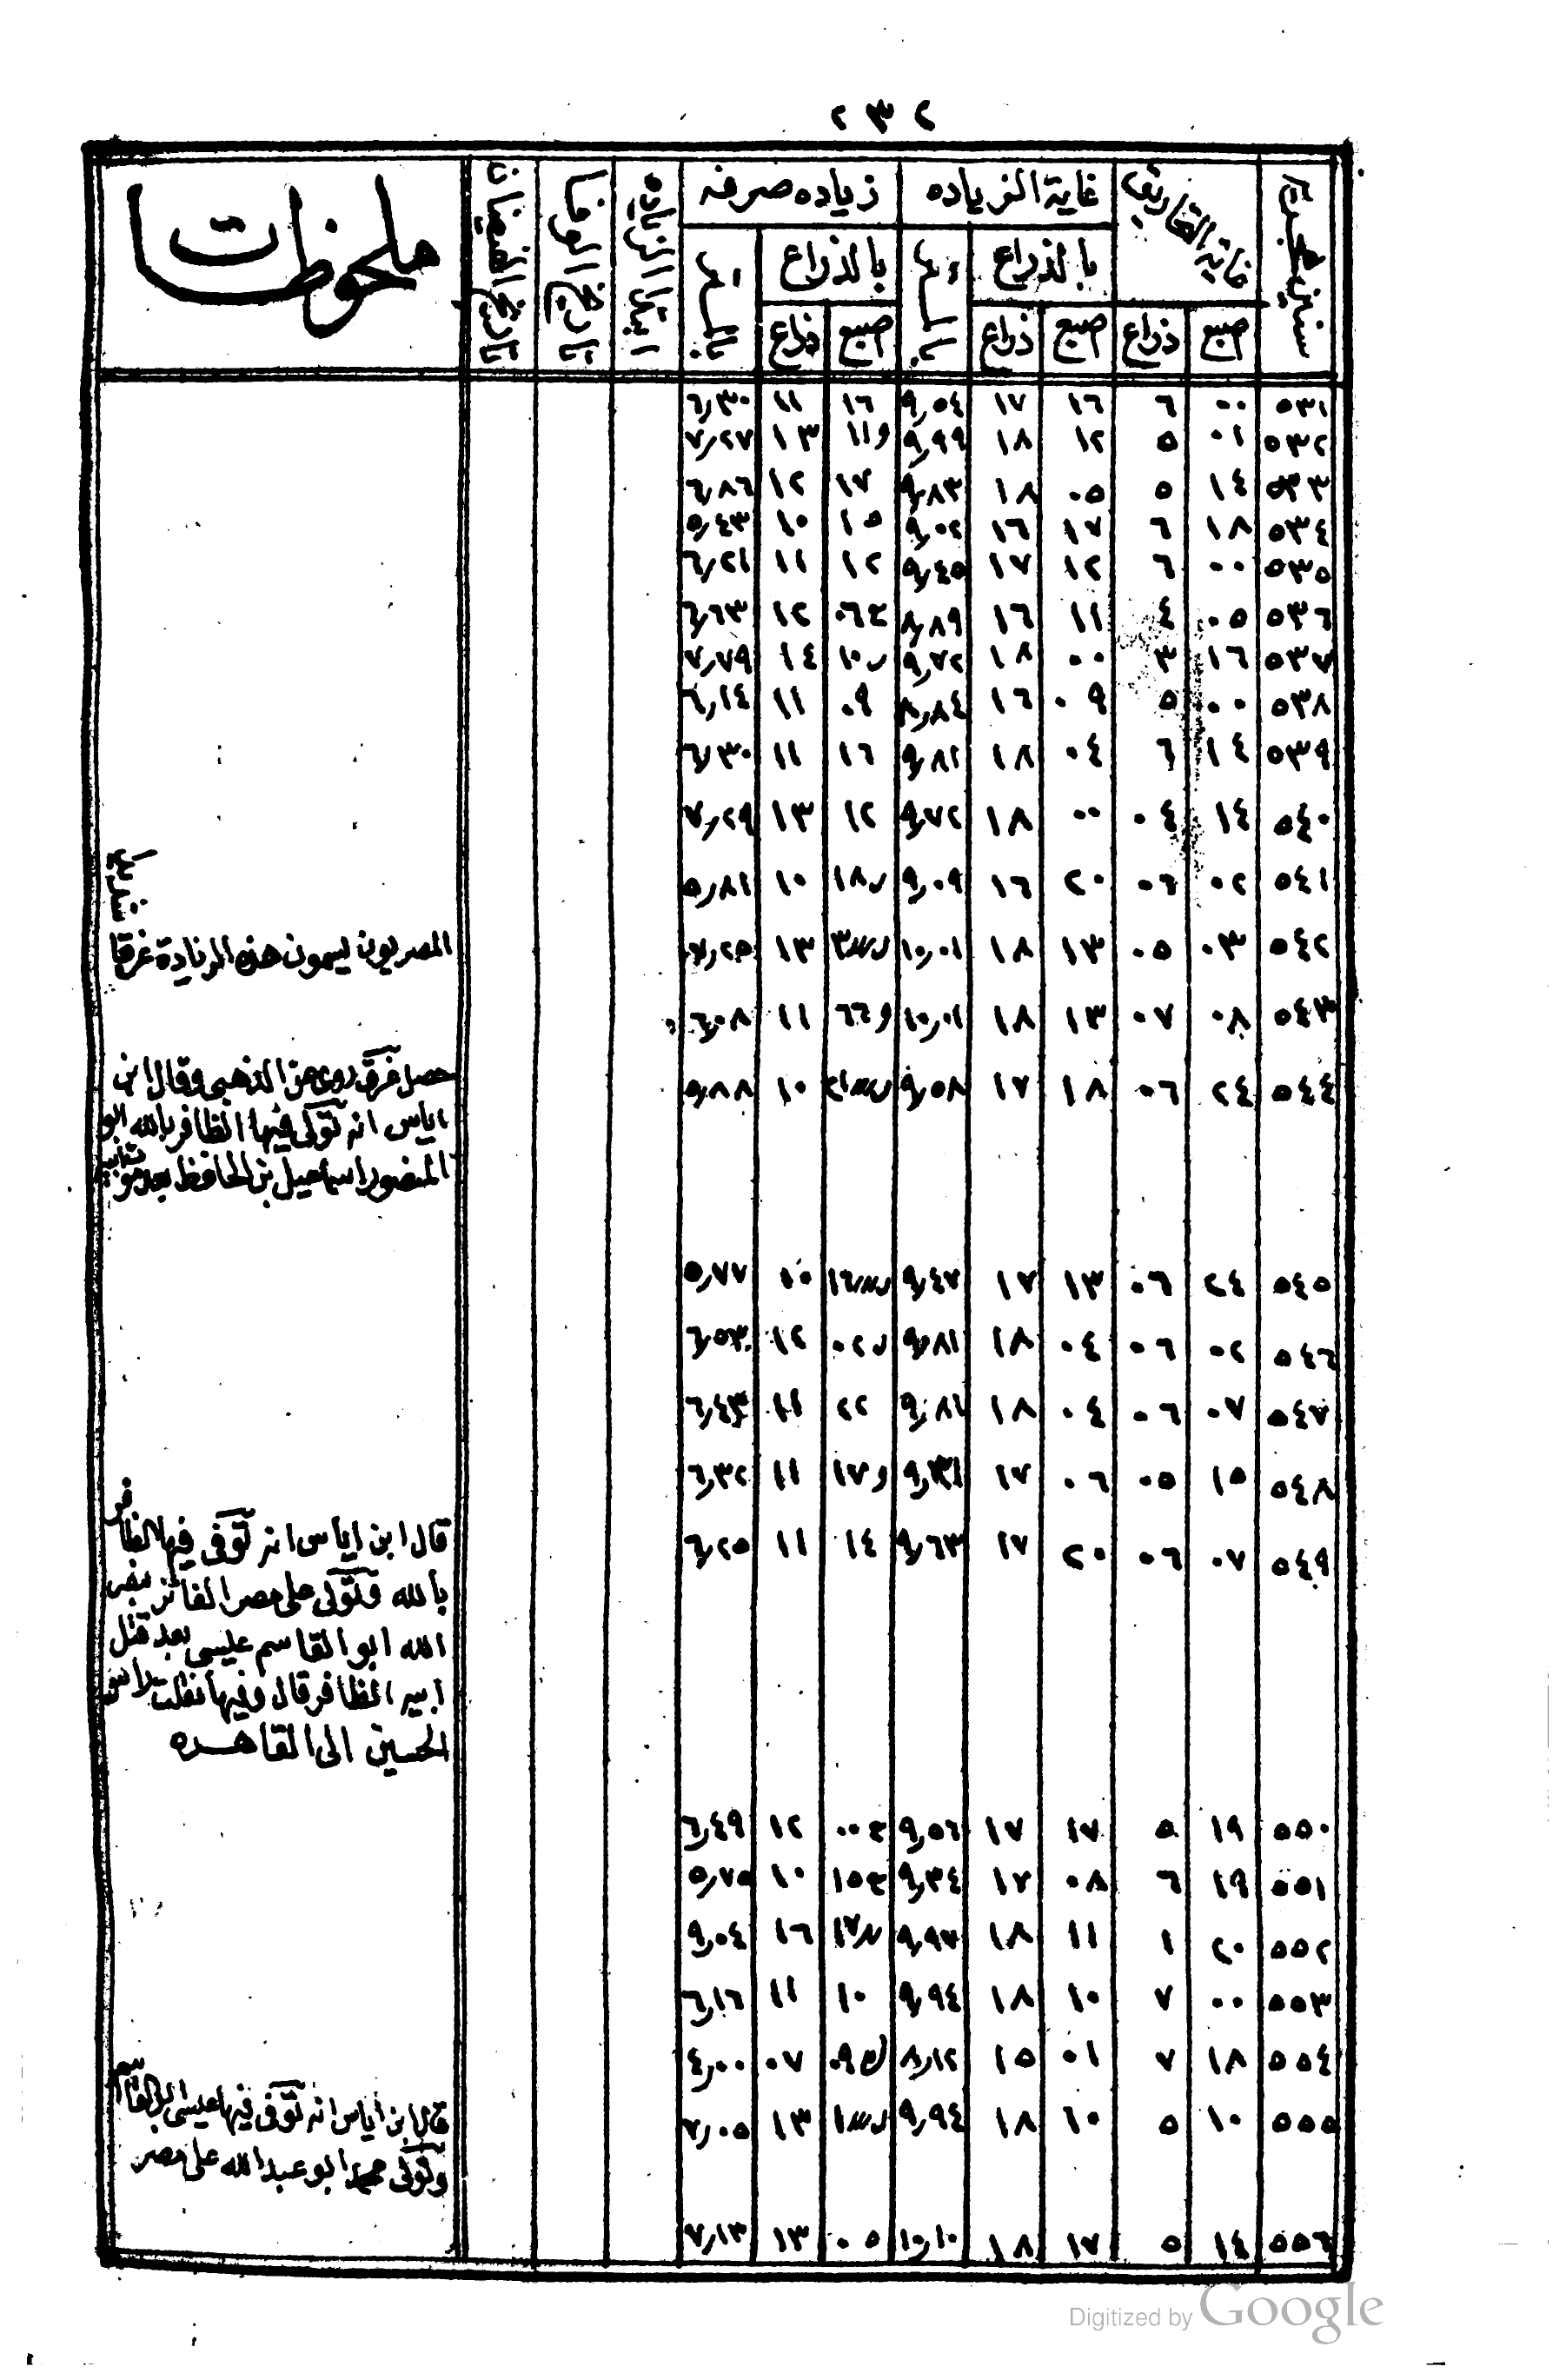 ٢٣٢
سنين هجرية
غاية التحاريق
غاية الزياده
زياده صرفه
ابتدا الزياده
تاريخ الوفا
تاريخ الفيضان
ملحوظات
بالذراع
بالذراع
اصبع ذراع اصبع ذراع اصبع ذراع
٥٣١ ٠٠ ٦ ١٦ ١٧ ٩,٥٤ ١٦ ١١ ٦,٣٠
٥٣٢ ٠١ ٥ ١٢ ١٨ ٩,٩٩ و١١ ١٣ ٧,٢٧
٥٣٣ ١٤ ٥ ٠٥ ١٨ ٩,٨٣ ١٧ ١٢ ٦,٨٦
٥٣٤ ١٨ ٦ ١٧ ١٦ ٩,٠٢ ١٥ ١٠ ٥,٤٣
٥٣٥ ٠٠ ٦ ١٢ ١٧ ٩,٤٥ ١٢ ١١ ٦,٢١
٥٣٦ ٠٥ ٤ ١١ ١٦ ٨,٨٩ ٠٦ ١٢ ٦,٦٣
٥٣٧ ١٦ ٣ ٠٠ ١٨ ٩,٧٢ ١٠ ١٤ ٧,٧٩
٥٣٨ ٠٠ ٥ ٠٩ ١٦ ٨,٨٤ ٠٩ ١١ ٦,١٤
٥٣٩ ١٤ ٦ ٠٤ ١٨ ٩,٨١ ١٦ ١١ ٦,٣٠
٥٤٠ ١٤ ٠٤ ٠٠ ١٨ ٩,٧٢ ١٢ ١٣ ٧,٢٩
٥٤١ ٠٢ ٠٦ ٢٠ ١٦ ٩,٠٩ ١٨ ١٠ ٥,٨١
٥٤٢ ٠٣ ٠٥ ١٣ ١٨ ١٠,٠١ ١٣ ٧,٢٥ المصريون يسمون هذه الزيادة غرقا
٥٤٣ ٠٨ ٠٧ ١٣ ١٨ ١٠,٠١ ١١ ٦,٠٨
٥٤٤ ٢٤ ٠٦ ١٨ ١٧ ٩,٥٨ ١٠ ٥,٨٨
حصل غرق روى عن الذهبى وقال ابن
اياس انه تولى فيها الظافر بالله ابو
المنصور اسماعيل بن الحافظ بعد موت ابيه
٥٤٥ ٢٤ ٠٦ ١٣ ١٧ ٩,٤٧ ١٠ ٥,٧٧
٥٤٦ ٠٢ ٠٦ ٠٤ ١٨ ٩,٨١ ٠٢ ١٢ ٦,٥٣
٥٤٧ ٠٧ ٠٦ ٠٤ ١٨ ٩,٨١ ٢٢ ١١ ٦,٤٣
٥٤٨ ١٥ ٠٥ ٠٦ ١٧ و١٧ ١١ ٦,٣٢
٥٤٩ ٠٧ ٠٦ ٢٠ ١٧ ٩,٦٣ ١٤ ١١ ٦,٢٥
قال ابن اياس انه توفى فيها الظافر
بالله وتولى على مصر الفائز بنصر
الله ابو القاسم عيسى بعد قتل
ابيه الظافر قال وفيها نقلت راس
الحسين الى القاهره
٥٥٠ ١٩ ٥ ١٧ ١٧ ٩,٥٦ ٠٠ ١٢ ٦,٤٩
٥٥١ ١٩ ٦ ٠٨ ١٧ ٩,٣٤ ١٥ ١٠ ٥,٧٥
٥٥٢ ٢٠ ١ ١١ ١٨ ٩,٩٧ ١٦ ٩,٠٤
٥٥٣ ٠٠ ٧ ١٠ ١٨ ٩,٩٤ ١٠ ١١ ٦,١٦
٥٥٤ ١٨ ٧ ٠١ ١٥ ٨,١٢ ٠٧ ٤,٠٠
٥٥٥ ١٠ ٥ ١٠ ١٨ ٩,٩٤ ١٣ ٧,٠٥
قال ابن اياس انه توفى فيها عيسى ابو القاسم
وتولى محمد ابو عبدالله على مصر
٥٥٦ ١٤ ٥ ١٧ ١٨ ١٠,١٠ ٠٥ ١٣ ٧,١٣
Digitized by Google